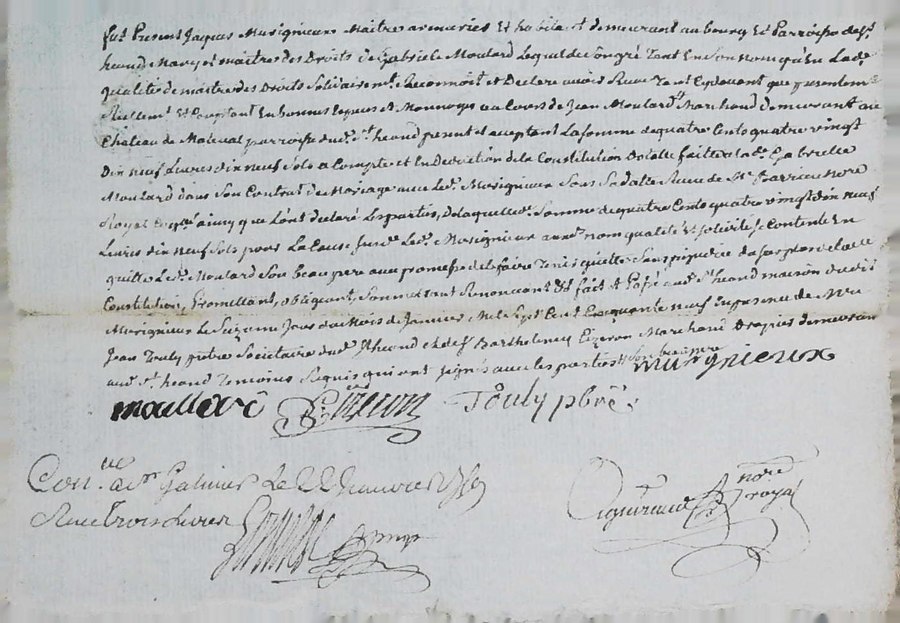 fut Present Jaques Murignieux Maitre armuries Et habitant demeurant au bourg Et Parroisse de St
heand Mary et maitre des Droits de Gabrielle Moulard Lequel de Son gré Tant En Son nom qu'En Lade
qualité de maitre des Droits Solidairemt. Reconnoit et Declare avoir Receu Tant Cydevant que presentemt
Rellemt. Et Comptant En bonnes Especes et Monnoye au Cours de Jean Moulard Marchand Demeurant au
Chateau de Malleval parroisse dud. St. heand present et acceptant La Somme de quatre Cents quatre vingt
Dix neuf Livres dix neuf Sols a Compte et En Deduction de la Constitution Dotalle faitte a lade. Gabrielle
Moulard dans Son Contrat de Mariage avec Led. Murignieux Sous Sa datte Receu de Me. Nore
Royal ainsy que L'ont declaré Les parties, De laquelle Somme de quatre Cents quatre vingt dix neuf
Livres dix neuf Sols pour La Cause Susde. Led. Murignieux aud. nom qualité Et Solidité Se Contente En
quitte Led. Moulard Son beau pere avec promesse de le faire Tenir quitte Sans prejudice du Surplus de lade
Constitution, Promettant, obligeant, Soumettant Renoncant &c fait Et Passé aud. St. heand maison dudit
Murignieux Le Seizieme Jour du Mois de Janvier Mil Sept Cent Cinquante neuf En presence de Mre
Jean Touly prêtre Societaire dud. St heand et de Sr. Barthelemy Marchand Drapier demeurant
aud. St. heand Temoins Requis qui ont signés avec Les parties Son beau pere murgnieux
moullard Touly pbre.
Con.lle a St Galmier Le 22 Janvier 1759
Receu Trois Livres
nore royal